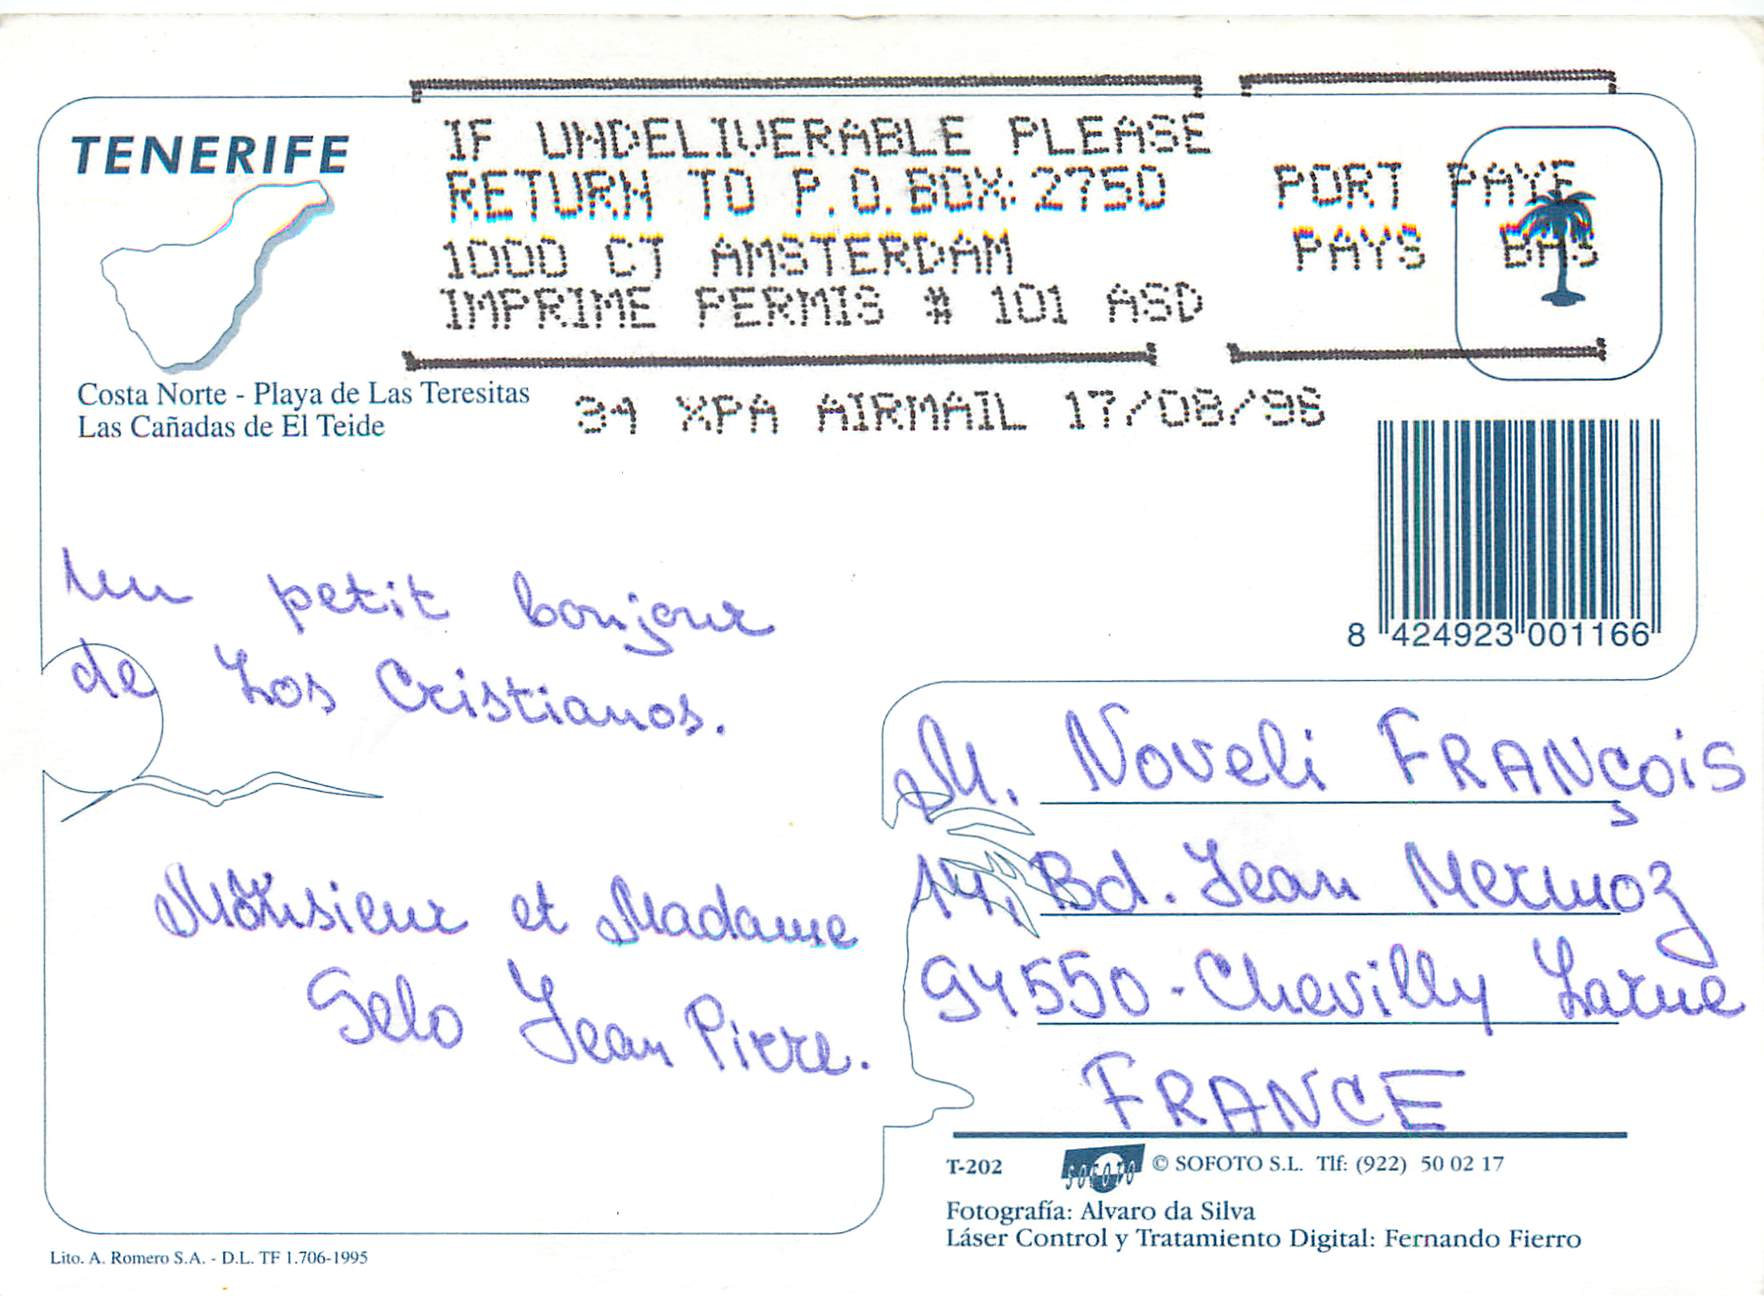 TENERIFE
IF UNDELIVERABLE PLEASE
RETURN TO P.O.BOX:2750
1000 CJ AMSTERDAM
IMPRIME PERMIS # 101 ASD
PORT PAYE
PAYS BAS
Costa Norte - Playa de Las Teresitas
Las Cañadas de El Teide
34 XPA AIRMAIL 17/08/96
8 424923 001166
Un petit bonjour
de Los Cristianos.
Monsieur et Madame
Selo Jean Pierre.
M. Noveli FRANÇOIS
14, Bd. Jean Mermoz
94550 - Chevilly Larue
FRANCE
T-202
SOFOTO
© SOFOTO S.L. Tlf: (922) 50 02 17
Fotografía: Alvaro da Silva
Láser Control y Tratamiento Digital: Fernando Fierro
Lito. A. Romero S.A. - D.L. TF 1.706-1995